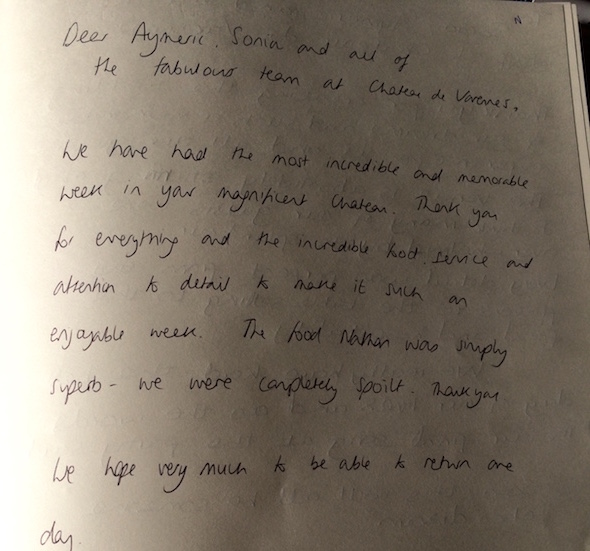 Dear Aymeric, Sonia and all of
the fabulous team at Chateau de Varennes,
We have had the most incredible and memorable
week in your magnificent Chateau. Thank you
for everything and the incredible food, service and
attention to detail to make it such an
enjoyable week. The food Nathan was simply
superb - we were completely spoilt. Thank you
We hope very much to be able to return one
day.